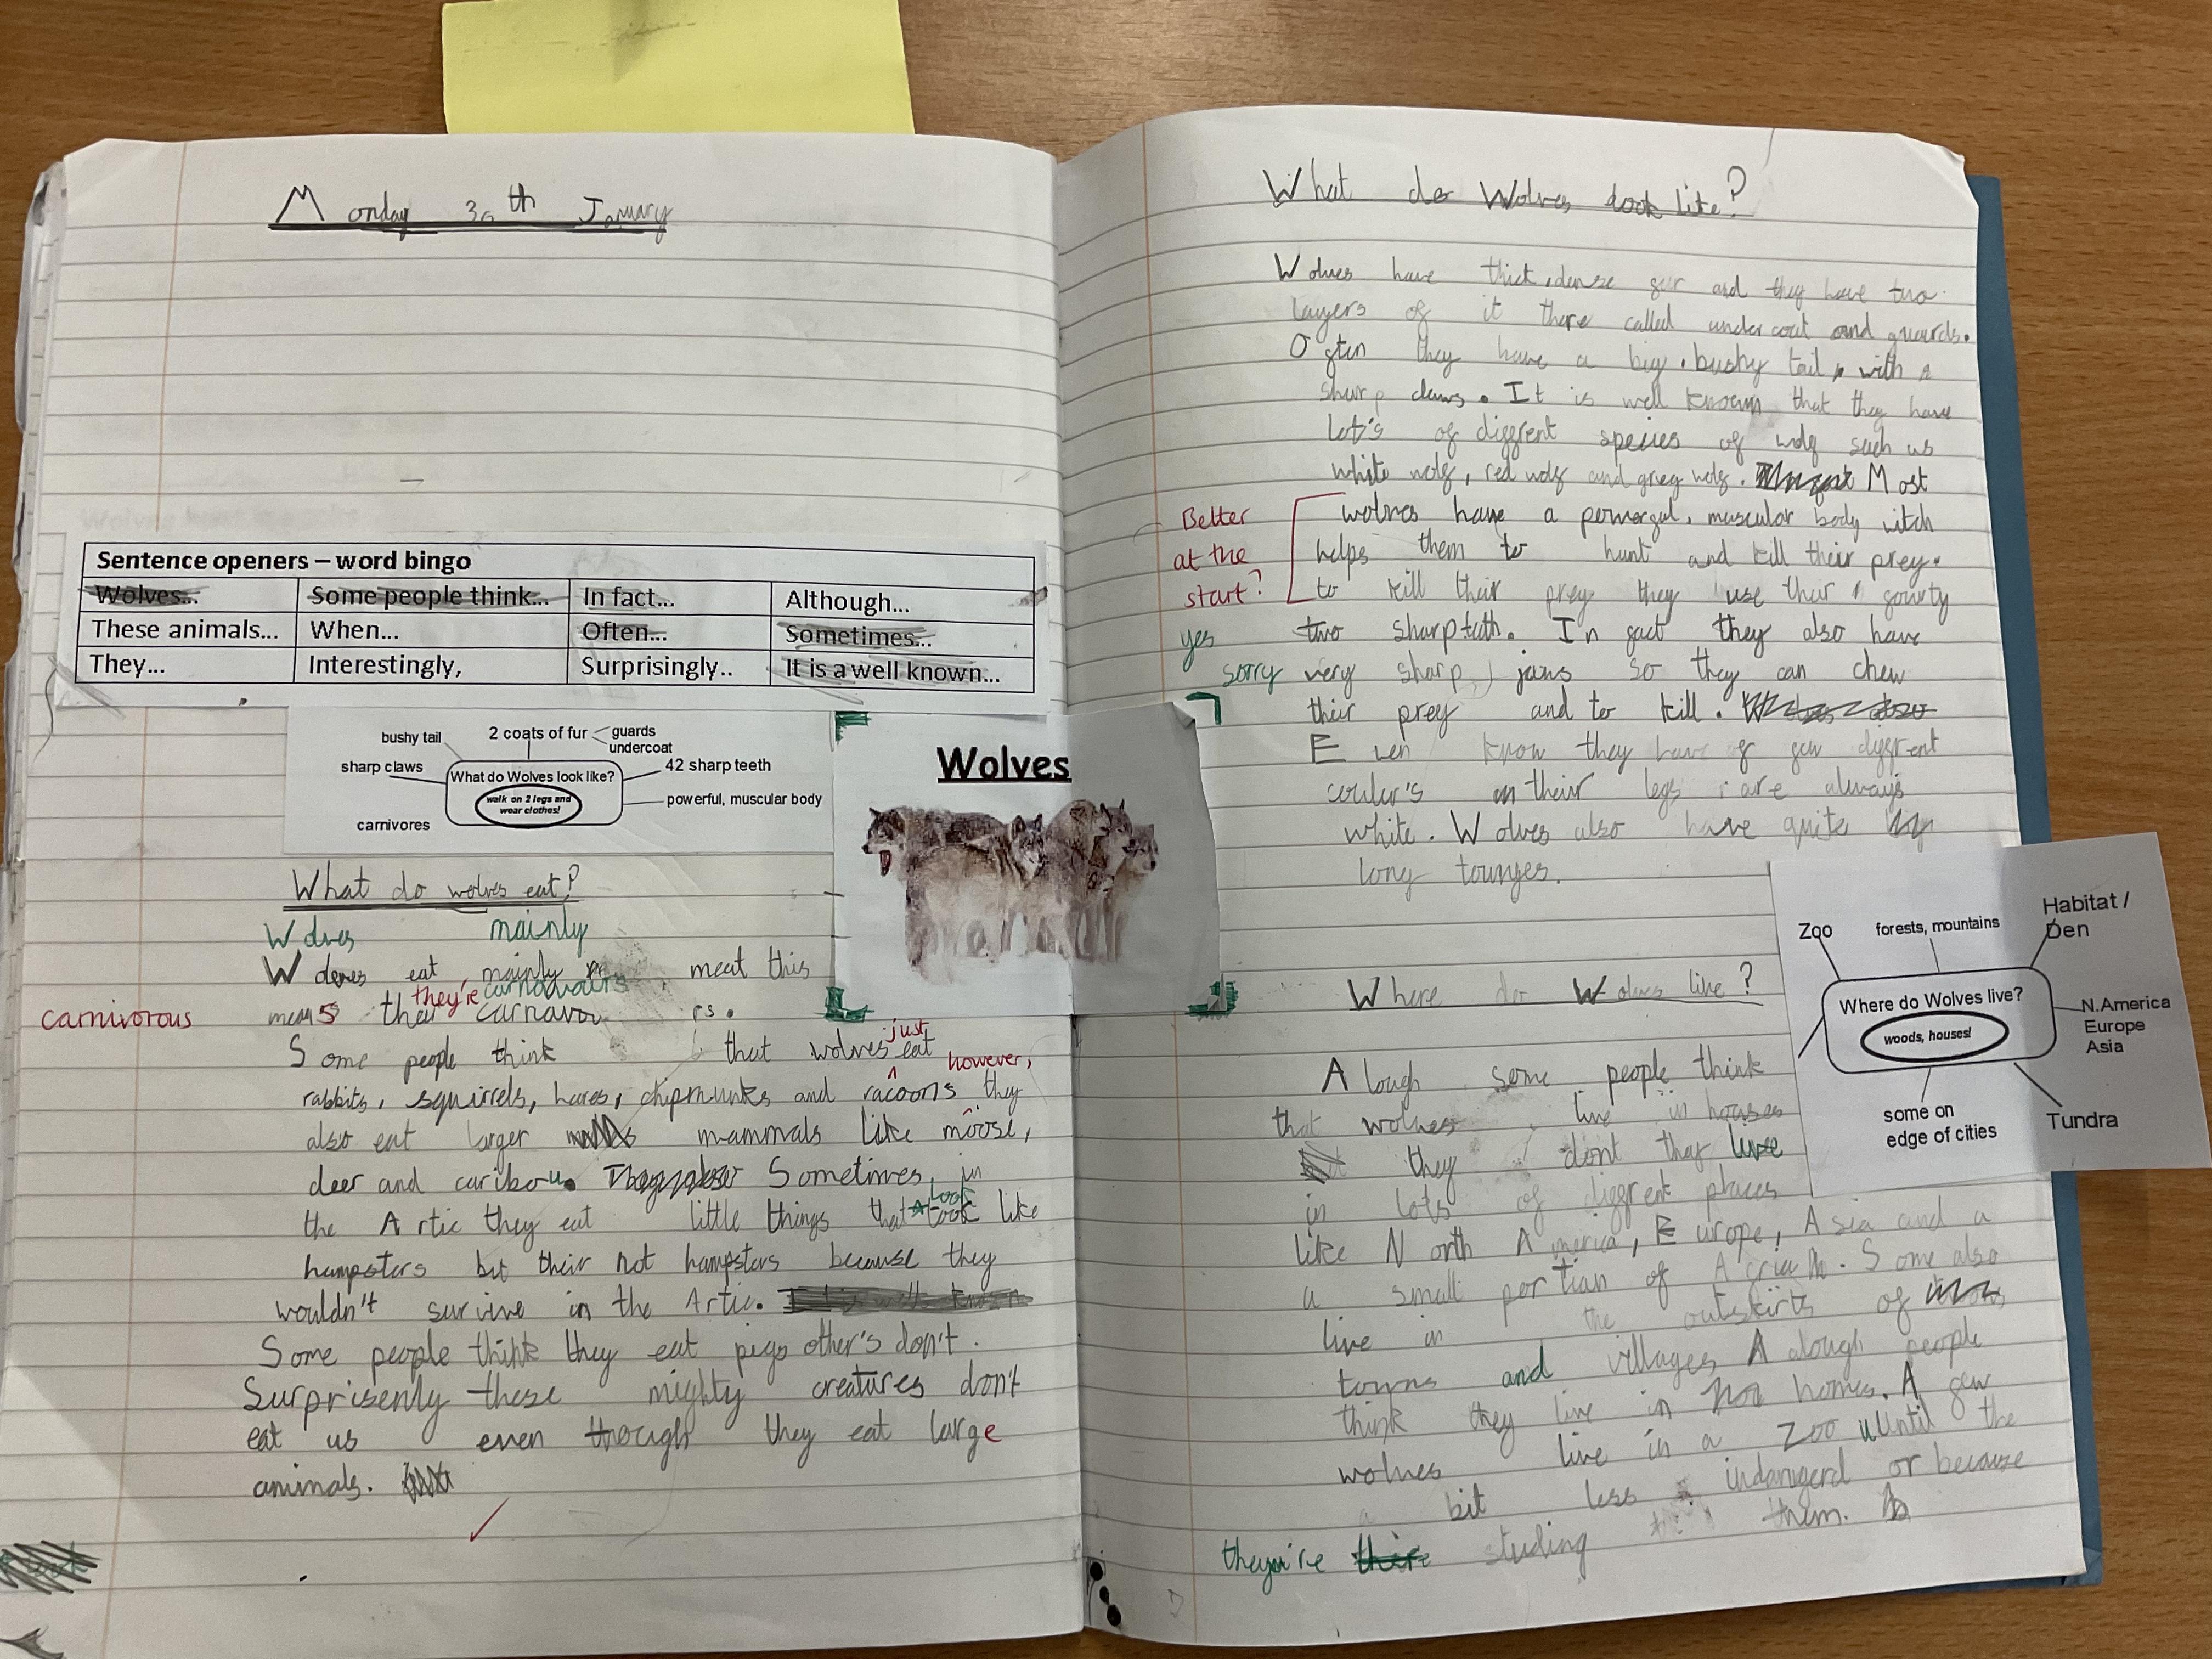 Monday 30th January
Sentence openers – word bingo
Wolves... Some people think... In fact... Although...
These animals... When... Often... Sometimes...
They... Interestingly, Surprisingly.. It is a well known...
bushy tail
2 coats of fur
guards
undercoat
sharp claws
What do Wolves look like?
42 sharp teeth
walk on 2 legs and
wear clothes!
powerful, muscular body
carnivores
Wolves
What do wolves eat?
Wolves mainly
Wolves eat mainly meat this
they're carnavours
carnivorous
means their carnavors.
just
Some people think that wolves eat
however,
rabbits, squirrels, hares, chipmunks and racoons they
also eat larger mammals like moose,
deer and caribou. Sometimes, in
look
the Artic they eat little things that look like
hampsters but their not hampsters because they
wouldn't survive in the Artic. It is well known
Some people think they eat pigs other's don't.
Surprisenly these mighty creatures don't
eat us even though they eat large
animals.
What do Wolves look like?
Wolves have thick, dense fur and they have two
layers of it there called under coat and guards.
Often they have a big, bushy tail, with
sharp claws. It is well known that they have
lot's of diffrent species of wolf such us
white wolf, red wolf and grey wolf. Most
Better
at the
start?
wolves have a powerful, muscular body witch
helps them to hunt and kill their prey.
to kill their prey they use their fourty
yes
two sharp teeth. In fact they also have
sorry
very sharp jaws so they can chew
their prey and to kill.
Even know they have of few diffrent
coulur's on their legs are always
white. Wolves also have quite
long tounges.
Where do Wolves live?
Zoo
forests, mountains
Habitat /
Den
Where do Wolves live?
woods, houses!
N.America
Europe
Asia
some on
edge of cities
Tundra
Alough some people think
that wolves live in houses
they dont they live
in lots of diffrent places
like North America, Europe, Asia and a
a small portian of Africa. Some also
live in the outskirts of
towns and villages Alough people
think they live in homes. A few
wolves live in a Zoo Until the
a bit less indangerd or because
theyou're there studing them.